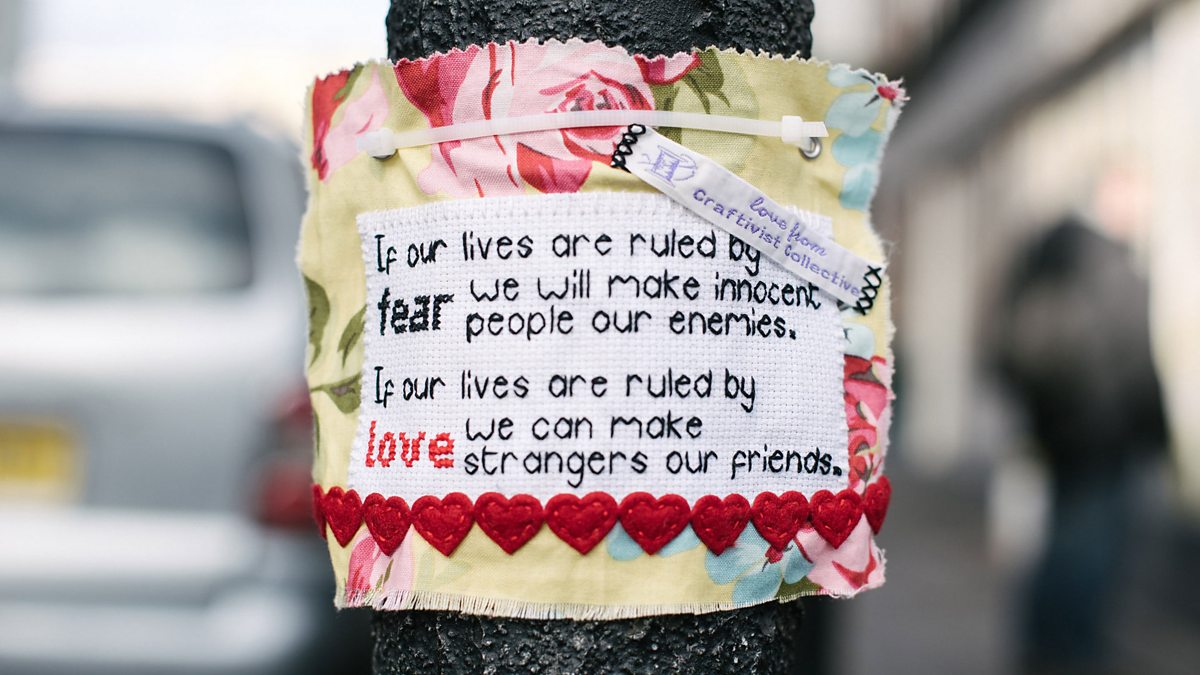 If our lives are ruled by
fear we will make innocent
people our enemies.
If our lives are ruled by
love we can make
strangers our friends.
love from
Craftivist Collective